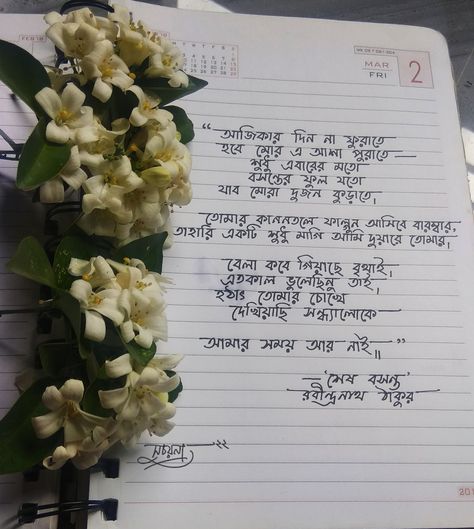 FEB'18
WK 09 * 061-304
MAR
FRI
2
“আজিকার দিন না ফুরাতে
হবে মোর এ আশা পুরাতে —
শুধু এবারের মতো
বসন্তের ফুল যতো
যাব মোরা দুজন কুড়াতে।
তোমার কাননতলে ফাল্গুন আসিবে বারম্বার,
তাহারি একটি শুধু মাগি আমি দুয়ারে তোমার।
বেলা কবে গিয়াছে বৃথাই।
এতকাল ভুলেছিনু তাই,
হঠাৎ তোমার চোখে
দেখিয়াছি সন্ধ্যালোকে —
আমার সময় আর নাই।।”
— 'শেষ বসন্ত'
রবীন্দ্রনাথ ঠাকুর
২২
201